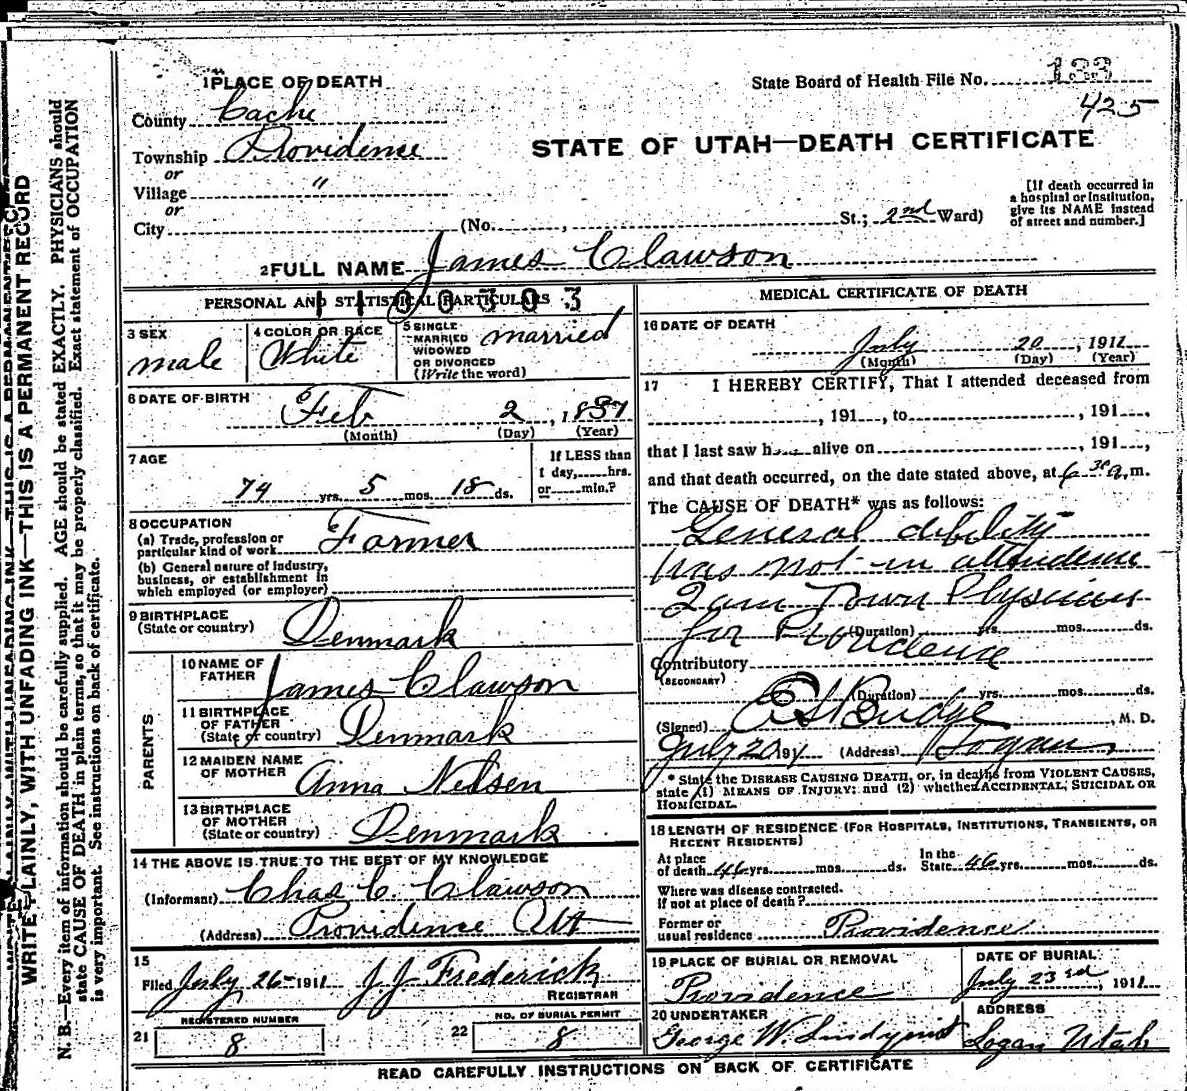 1 PLACE OF DEATH
State Board of Health File No. 133
425
County Cache
Township Providence
or
Village "
or
City (No. , St.; 2nd Ward)
STATE OF UTAH—DEATH CERTIFICATE
[If death occurred in
a hospital or institution,
give its NAME instead
of street and number.]
2 FULL NAME James Clawson
1100303
PERSONAL AND STATISTICAL PARTICULARS
3 SEX
male
4 COLOR OR RACE
White
5 SINGLE
MARRIED
WIDOWED
OR DIVORCED
(Write the word)
married
6 DATE OF BIRTH
Feb 2, 1837
(Month) (Day) (Year)
7 AGE
74 yrs. 5 mos. 18 ds.
If LESS than
1 day, hrs.
or min.?
8 OCCUPATION
(a) Trade, profession or
particular kind of work Farmer
(b) General nature of industry,
business, or establishment in
which employed (or employer)
9 BIRTHPLACE
(State or country) Denmark
PARENTS
10 NAME OF
FATHER James Clawson
11 BIRTHPLACE
OF FATHER
(State or country) Denmark
12 MAIDEN NAME
OF MOTHER Anna Nelsen
13 BIRTHPLACE
OF MOTHER
(State or country) Denmark
14 THE ABOVE IS TRUE TO THE BEST OF MY KNOWLEDGE
(Informant) Chas C. Clawson
(Address) Providence Ut
15
Filed July 26- 1911 J. J. Frederick
REGISTRAR
REGISTERED NUMBER
21 8
NO. OF BURIAL PERMIT
22 8
MEDICAL CERTIFICATE OF DEATH
16 DATE OF DEATH
July 20, 1911
(Month) (Day) (Year)
17 I HEREBY CERTIFY, That I attended deceased from
, 191 , to , 191 ,
that I last saw h alive on , 191 ,
and that death occurred, on the date stated above, at 6 30 a, m.
The CAUSE OF DEATH* was as follows:
General debility
Was not in attendence
I am Town Physician
for Providence
(Duration) yrs. mos. ds.
Contributory
(SECONDARY)
(Duration) yrs. mos. ds.
(Signed) Budge, M. D.
July 20 191 (Address) Logan
* State the DISEASE CAUSING DEATH, or, in deaths from VIOLENT CAUSES,
state (1) MEANS OF INJURY; and (2) whether ACCIDENTAL, SUICIDAL OR
HOMICIDAL.
18 LENGTH OF RESIDENCE (FOR HOSPITALS, INSTITUTIONS, TRANSIENTS, OR
RECENT RESIDENTS)
At place
of death 46 yrs. mos. ds.
In the
State 46 yrs. mos. ds.
Where was disease contracted.
if not at place of death?
Former or
usual residence Providence
19 PLACE OF BURIAL OR REMOVAL
Providence
DATE OF BURIAL
July 23rd, 1911
20 UNDERTAKER
George W. Lindquist
ADDRESS
Logan Utah
READ CAREFULLY INSTRUCTIONS ON BACK OF CERTIFICATE
WRITE PLAINLY, WITH UNFADING INK—THIS IS A PERMANENT RECORD
N. B.—Every item of information should be carefully supplied. AGE should be stated EXACTLY. PHYSICIANS should
state CAUSE OF DEATH in plain terms, so that it may be properly classified. Exact statement of OCCUPATION
is very important. See instructions on back of certificate.